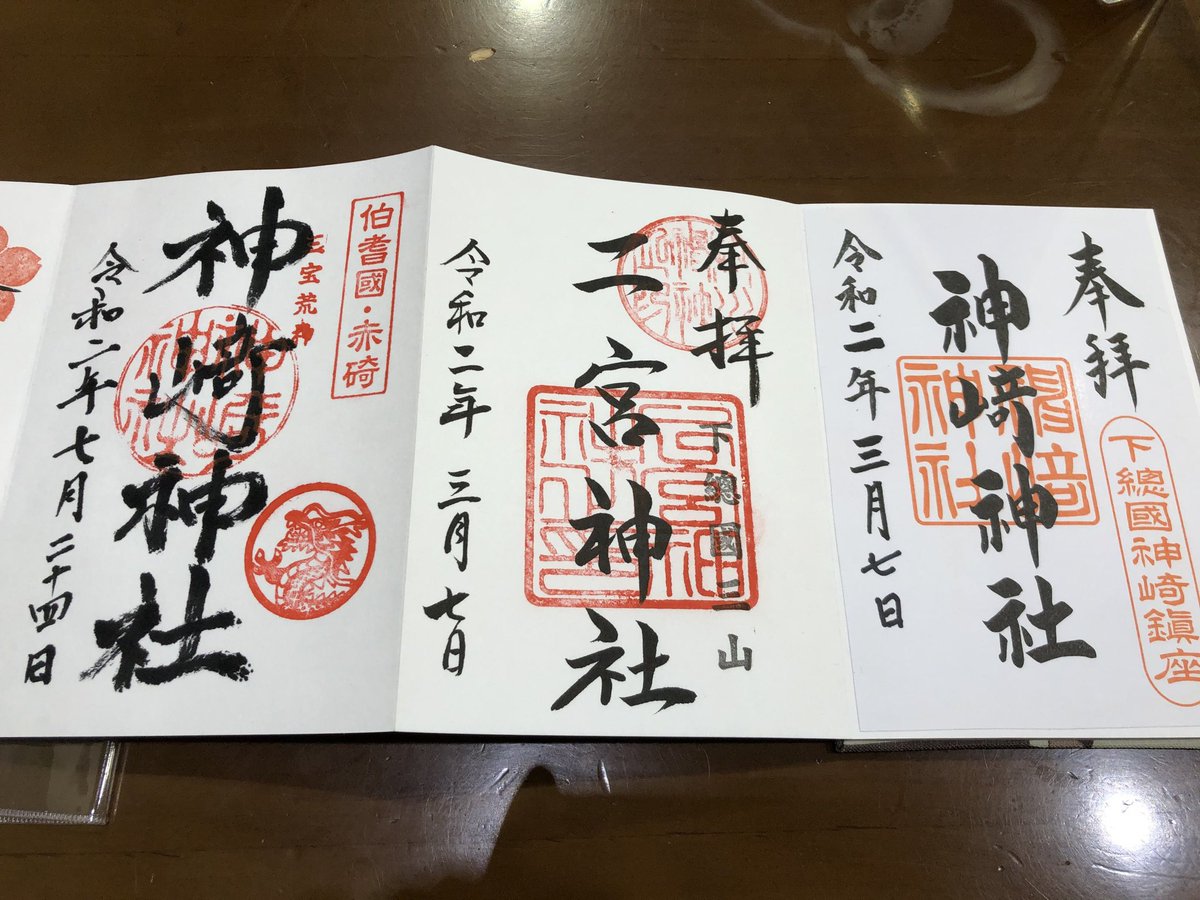 奉拝
下總國神崎鎮座
神崎神社
令和二年三月七日
奉拝
下總國三山
二宮神社
令和二年三月七日
伯耆國・赤碕
三宝荒神
神﨑神社
令和二年七月二十四日